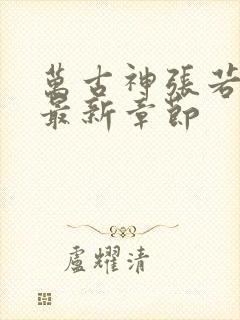 萬古神張若
最新章節
盧耀清